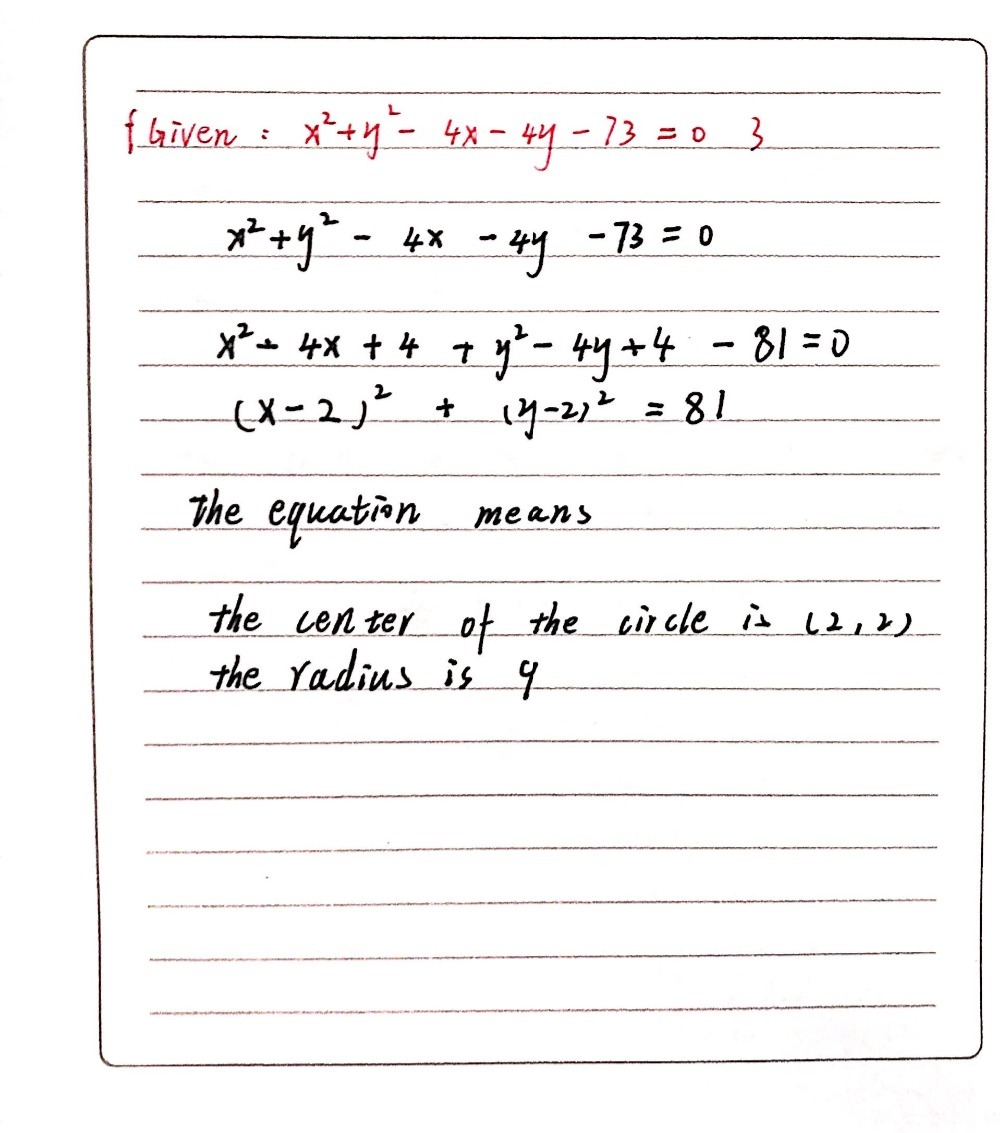 {Given : x²+y²- 4x - 4y - 73 = 0 }
x²+y² - 4x - 4y - 73 = 0
x² - 4x + 4 + y² - 4y + 4 - 81 = 0
(x-2)² + (y-2)² = 81
The equation means
the center of the circle is (2,2)
the radius is 9